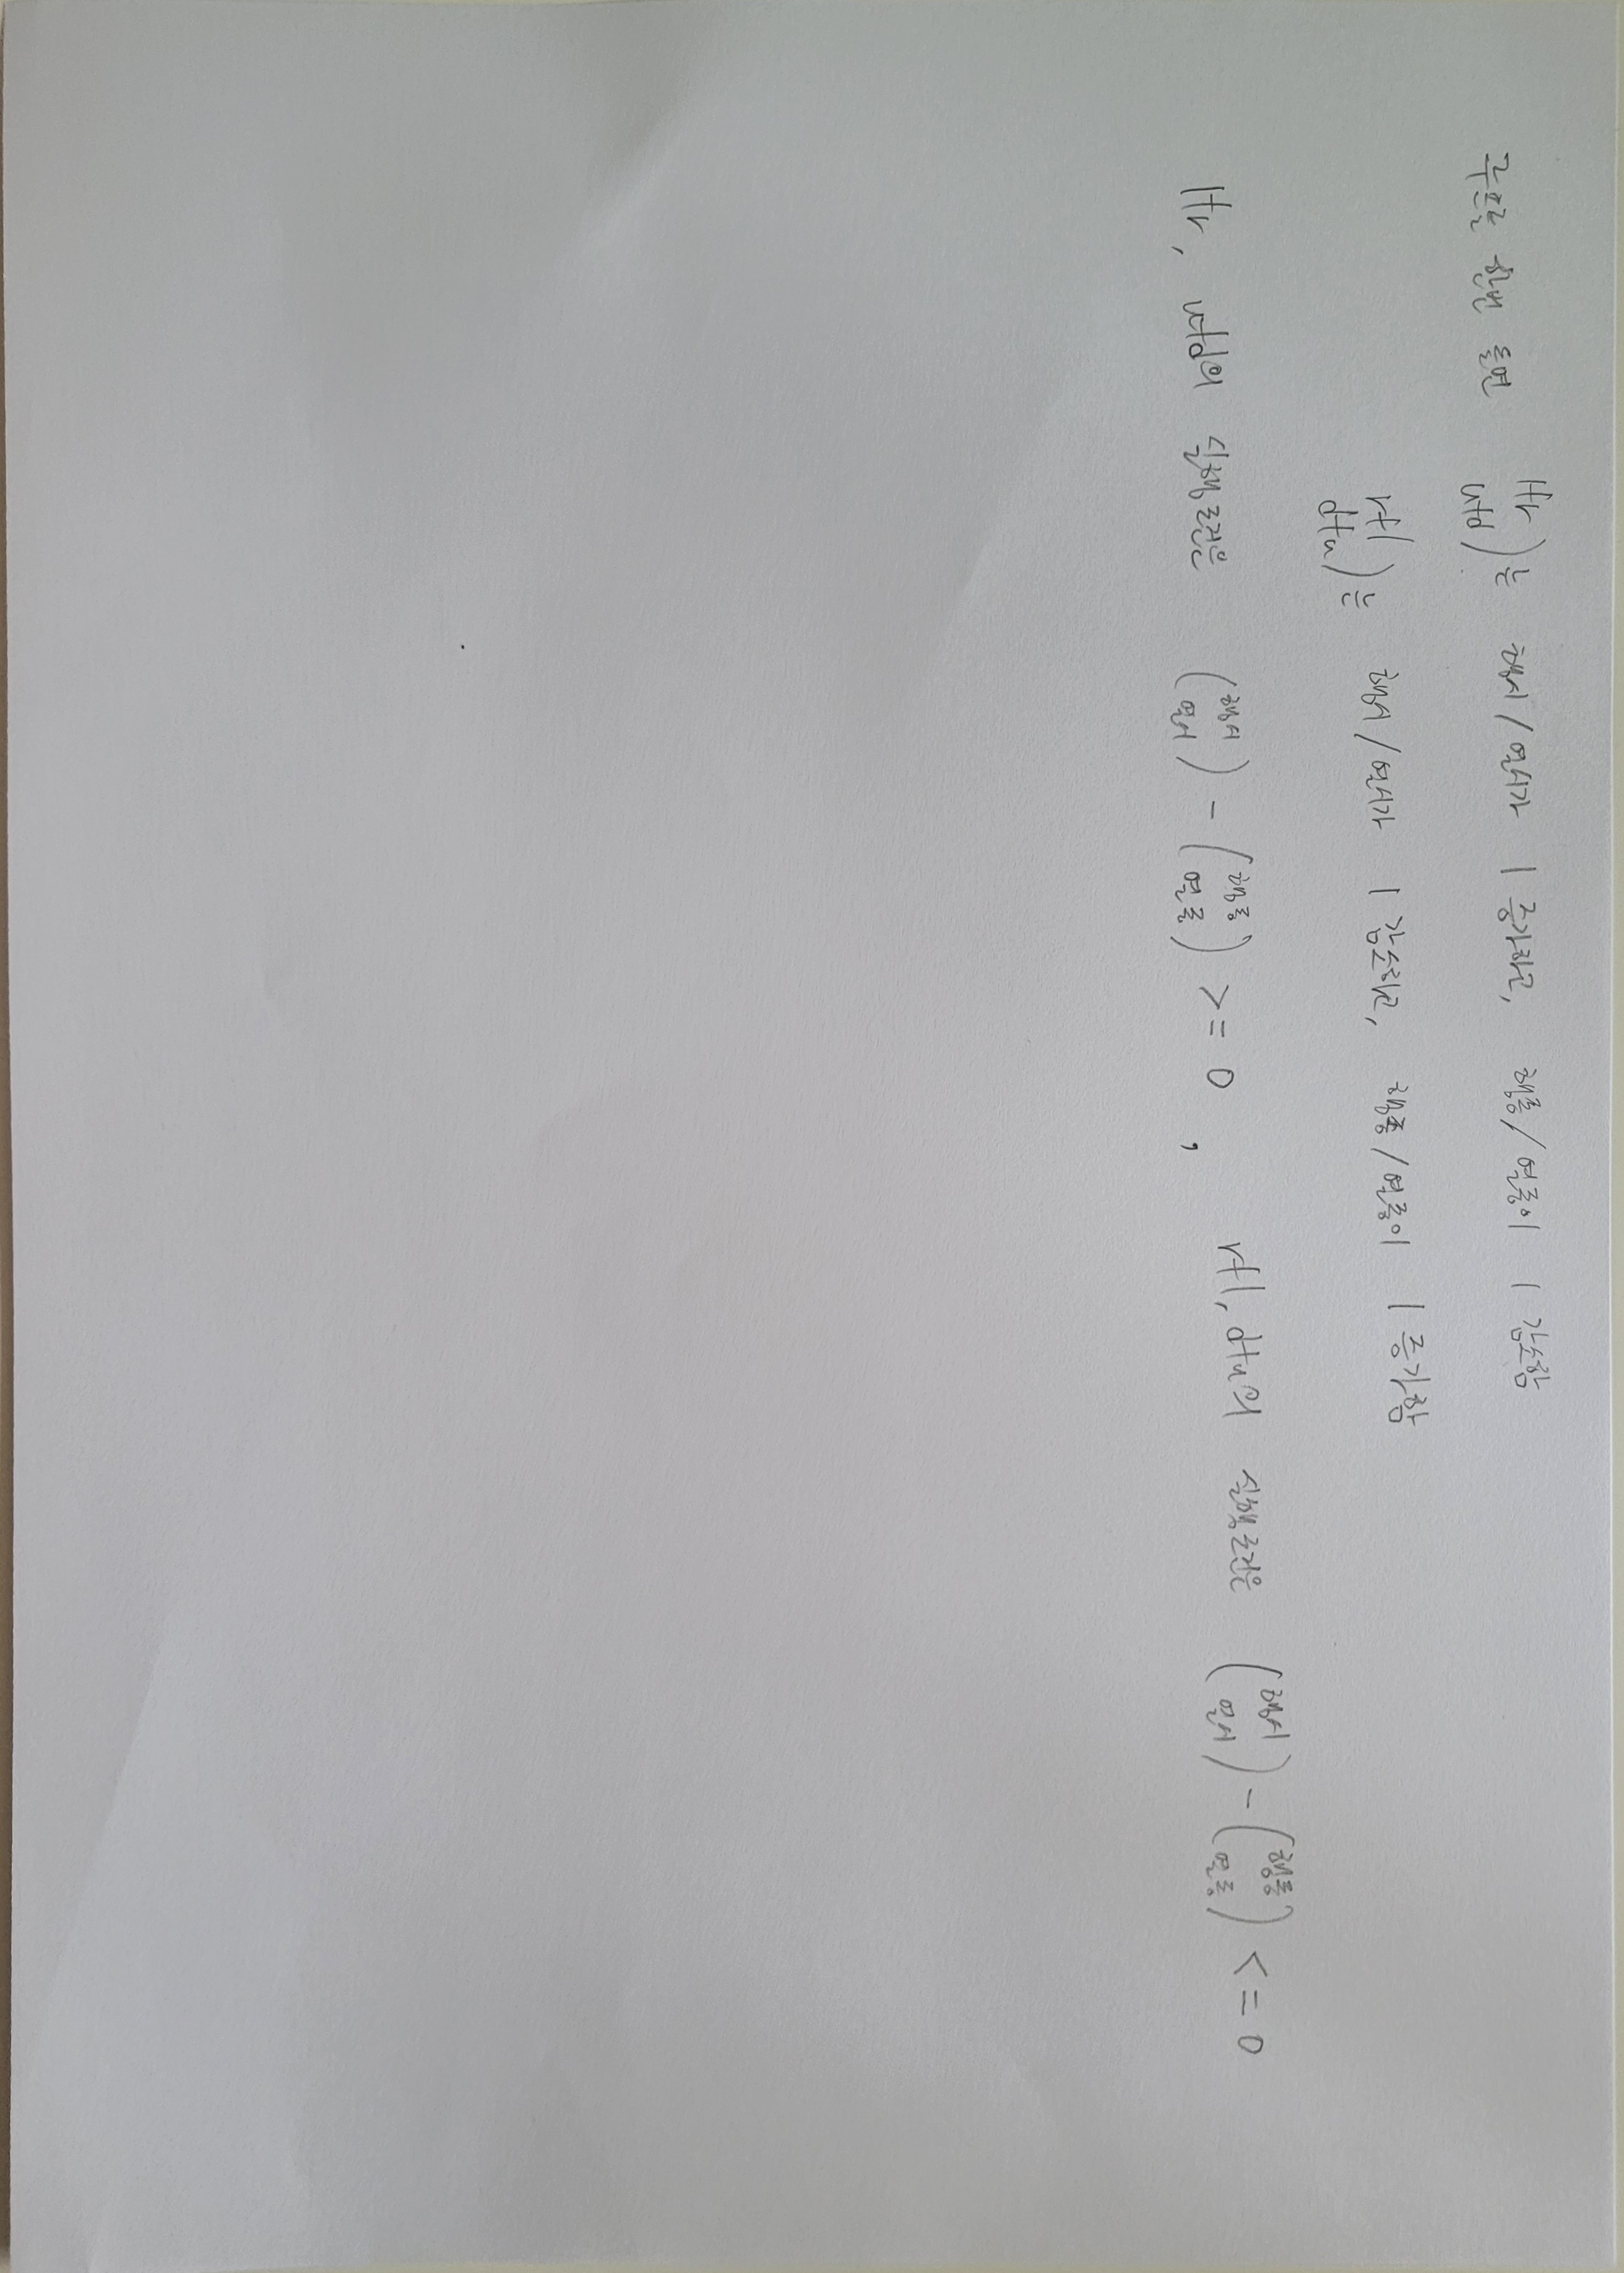 루프를 한번 돌면 ltr utd)는 행시/열시가 1 증가하고, 행종/열종이 1 감소함
rtl dtu)는 행시/열시가 1 감소하고, 행종/열종이 1 증가함
ltr, utd의 실행조건은 (행시 열시) - (행종 열종) >= 0 , rtl, dtu의 실행조건은 (행시 열시) - (행종 열종) <= 0